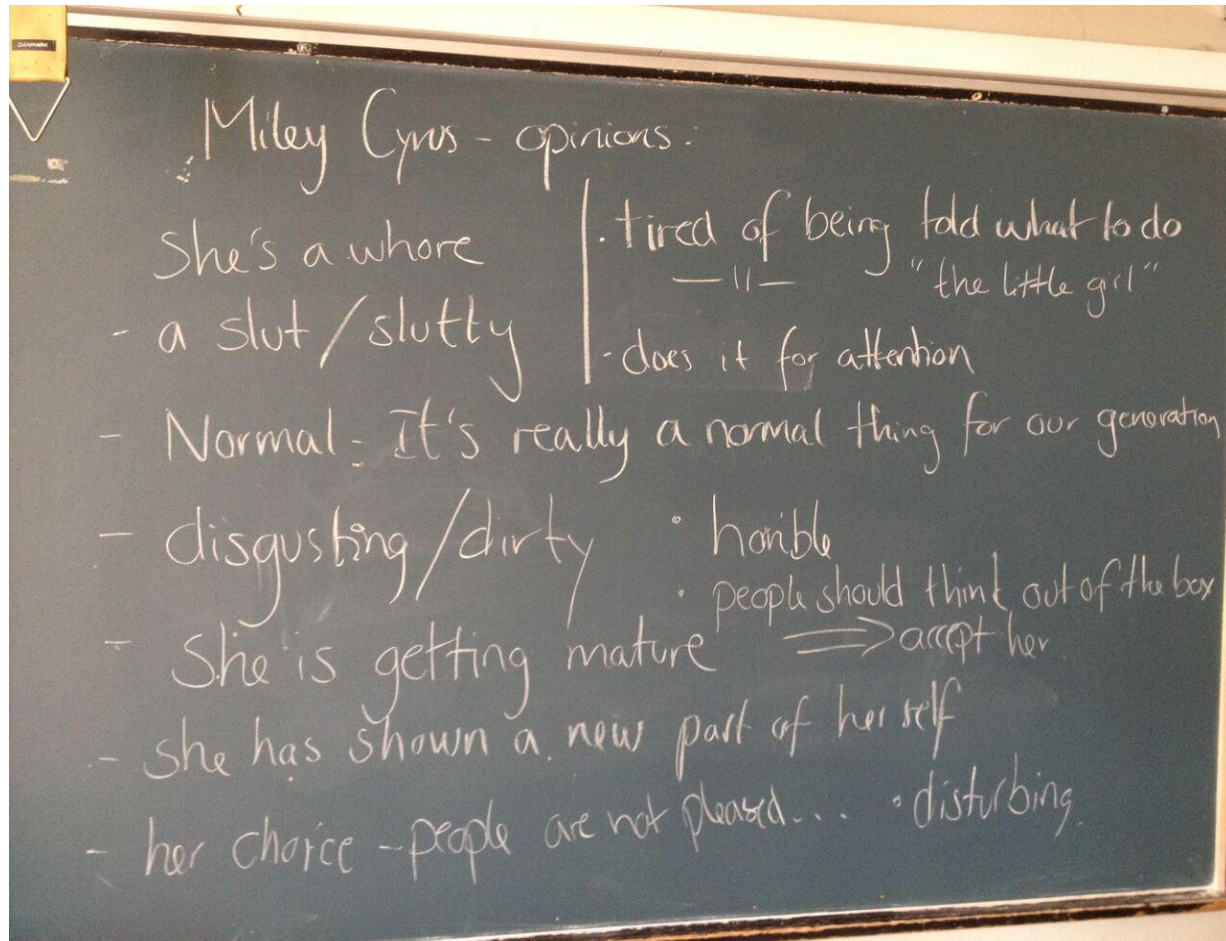 Miley Cyrus - opinions:
She's a whore
- a slut / slutty
· tired of being told what to do
—11— "the little girl"
· does it for attention
- Normal - It's really a normal thing for our generation
- disgusting / dirty
· horrible
· people should think out of the box
⇒ accept her
- She is getting mature
- she has shown a new part of her self
- her choice - people are not pleased...
· disturbing.